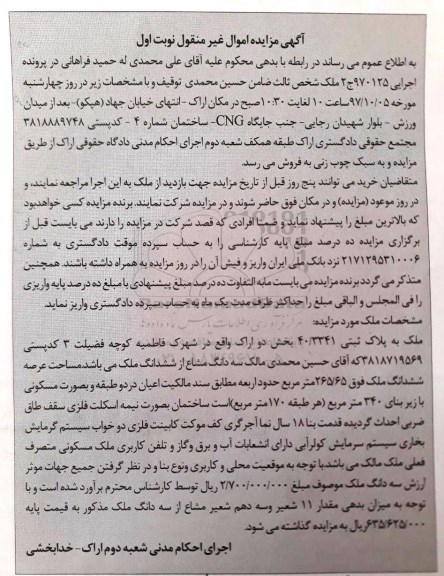 آگهی مزایده اموال غیر منقول نوبت اول
به اطلاع عموم می رساند در رابطه با بدهی محکوم علیه آقای علی محمدی له حمید فراهانی در پرونده
اجرایی ۹۷۰۱۲۵ج۲ ملک شخص ثالث ضامن حسین محمدی توقیف و با مشخصات زیر در روز چهارشنبه
مورخه ۹۷/۱۰/۰۵ساعت ۱۰ لغایت ۱۰:۳۰صبح در مکان اراک - انتهای خیابان جهاد (هپکو)- بعد از میدان
ورزش - بلوار شهیدان رجایی- جنب جایگاه CNG- ساختمان شماره ۴ - کدپستی ۳۸۱۸۸۸۹۷۴۸
مجتمع حقوقی دادگستری اراک طبقه همکف شعبه دوم اجرای احکام مدنی دادگاه حقوقی اراک از طریق
مزایده و به سبک چوب زنی به فروش می رسد.
متقاضیان خرید می توانند پنج روز قبل از تاریخ مزایده جهت بازدید از ملک به این اجرا مراجعه نمایند، و
در روز موعود (مزایده) و در مکان فوق حاضر شوند و در مزایده شرکت نمایند. برنده مزایده کسی خواهدبود
که بالاترین مبلغ را پیشنهاد نماید، ضمنا افرادی که قصد شرکت در مزایده را دارند می بایست قبل از
برگزاری مزایده ده درصد مبلغ پایه کارشناسی را به حساب سپرده موقت دادگستری به شماره
۲۱۷۱۲۹۵۳۱۰۰۰۶ نزد بانک ملی ایران واریز و فیش آن را در روز مزایده به همراه داشته باشند. همچنین
متذکر می گردد برنده مزایده می بایست مابه التفاوت ده درصد مبلغ پیشنهادی با مبلغ ده درصد پایه واریزی
را فی المجلس و الباقی مبلغ را حداکثر ظرف مدت یک ماه به حساب سپرده دادگستری واریز نماید.
مشخصات ملک مورد مزایده:
ملک به پلاک ثبتی ۴۰/۳۳۴۱ بخش دو اراک واقع در شهرک فاطمیه کوچه فضیلت ۳ کدپستی
۳۸۱۸۷۱۹۵۶۹که آقای حسین محمدی مالک سه دانگ مشاع از ششدانگ ملک می باشد.مساحت عرصه
ششدانگ ملک فوق ۲۶۵/۶۵متر مربع حدود اربعه مطابق سند مالکیت اعیان در دو طبقه و بصورت مسکونی
با زیر بنای ۳۴۰ متر مربع (هر طبقه ۱۷۰ متر مربع)است ساختمان بصورت نیمه اسکلت فلزی سقف طاق
ضربی احداث گردیده قدمت بنا ۱۸ سال نما آجرگری کف موکت کابینت فلزی دو خواب سیستم گرمایش
بخاری سیستم سرمایش کولرآبی دارای انشعابات آب و برق وگاز و تلفن کاربری ملک مسکونی متصرف
فعلی ملک مالک می باشد.با توجه به موقعیت محلی و کاربری ونوع بنا و در نظر گرفتن جمیع جهات موثر
ارزش سه دانگ ملک موصوف مبلغ ۲/۷۰۰/۰۰۰/۰۰۰ ریال توسط کارشناس محترم برآورد شده است و با
توجه به میزان بدهی مقدار ۱۱ شعیر وسه دهم شعیر مشاع از سه دانگ ملک مذکور به قیمت پایه
۶۳۵/۶۲۵/۰۰۰ریال به مزایده گذاشته می شود.
اجرای احکام مدنی شعبه دوم اراک - خدابخشی